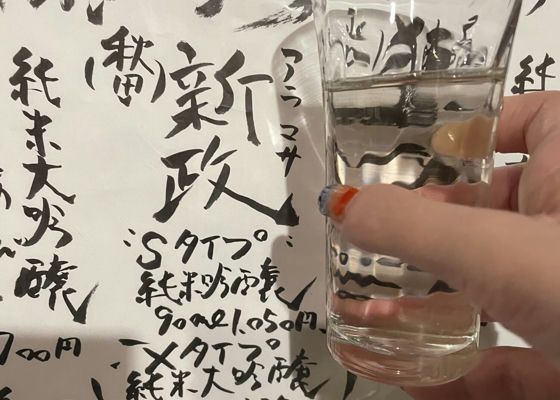 (秋田)
新政
アラマサ
Sタイプ
純米吟醸
90ml 1,050円
Xタイプ
純米大吟醸
純米大吟醸
700円
純